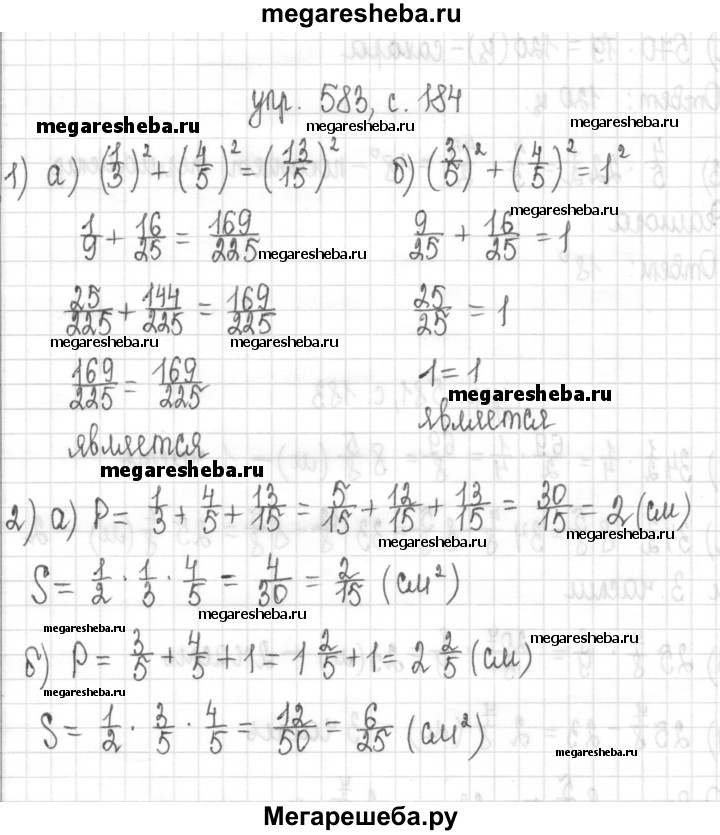 megaresheba.ru
упр. 583, с. 184
megaresheba.ru megaresheba.ru megaresheba.ru
1) а) (1/3)² + (4/5)² = (13/15)² б) (3/5)² + (4/5)² = 1²
megaresheba.ru
1/9 + 16/25 = 169/225 9/25 + 16/25 = 1
megaresheba.ru
25/225 + 144/225 = 169/225 25/25 = 1
megaresheba.ru megaresheba.ru
169/225 = 169/225 1 = 1
megaresheba.ru
является
является
megaresheba.ru
2) а) P = 1/3 + 4/5 + 13/15 = 5/15 + 12/15 + 13/15 = 30/15 = 2 (см)
megaresheba.ru megaresheba.ru
S = 1/2 · 1/3 · 4/5 = 4/30 = 2/15 (см²)
megaresheba.ru
megaresheba.ru megaresheba.ru
б) P = 3/5 + 4/5 + 1 = 1 2/5 + 1 = 2 2/5 (см)
megaresheba.ru
S = 1/2 · 3/5 · 4/5 = 12/50 = 6/25 (см²)
megaresheba.ru
Мегарешеба.ру